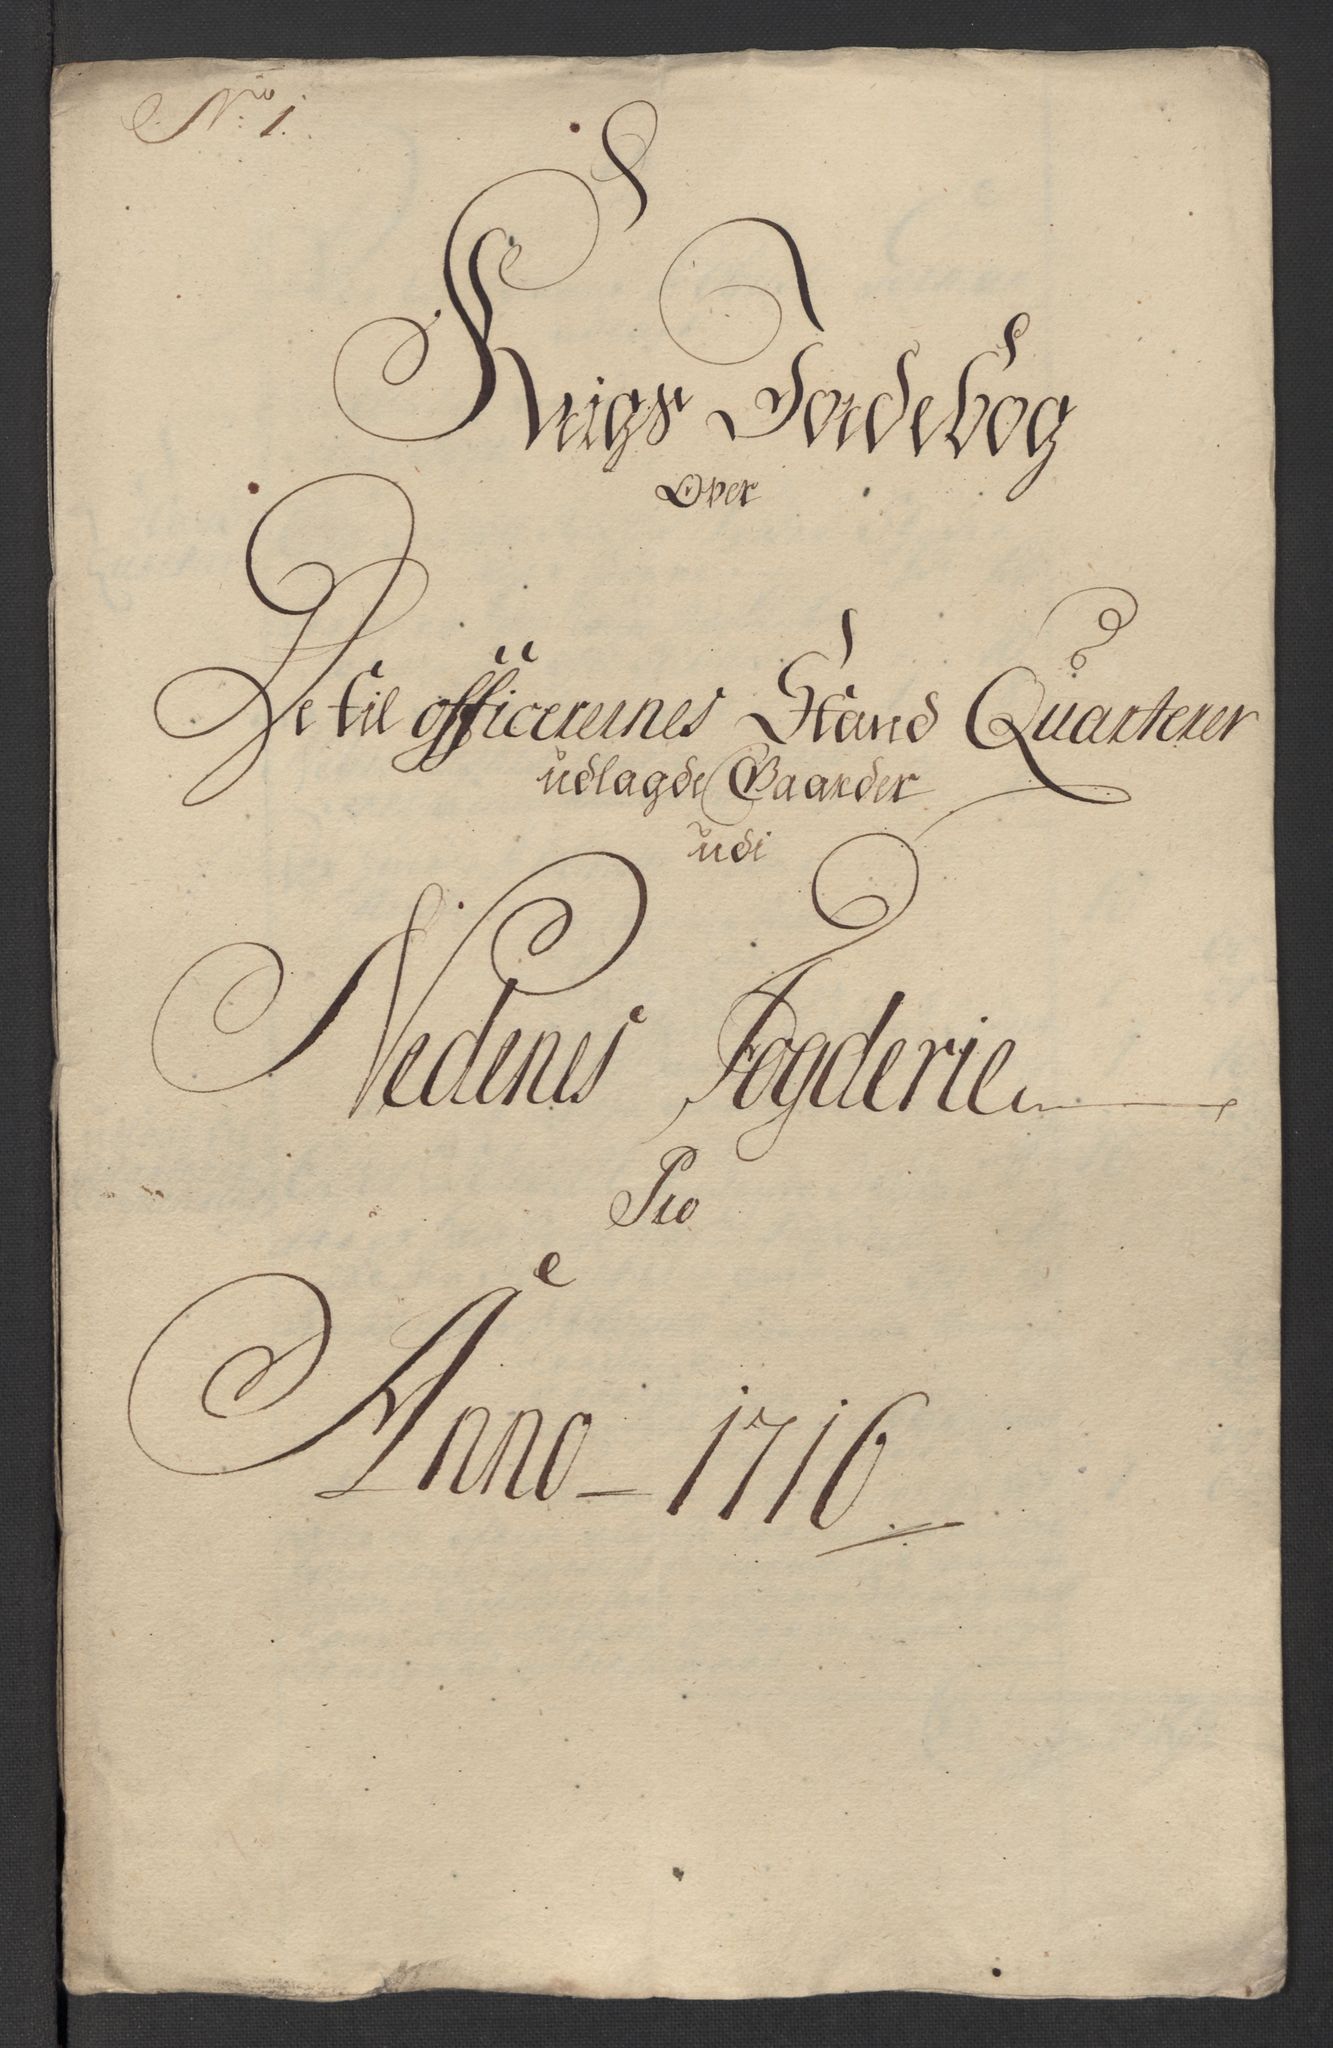 Nro 1.
Krigs Jordebog
Over
De til officerernes Stand Quarterer
udlagde Gaarder
udi
Nedenes Fogderie
Pro
Anno 1716